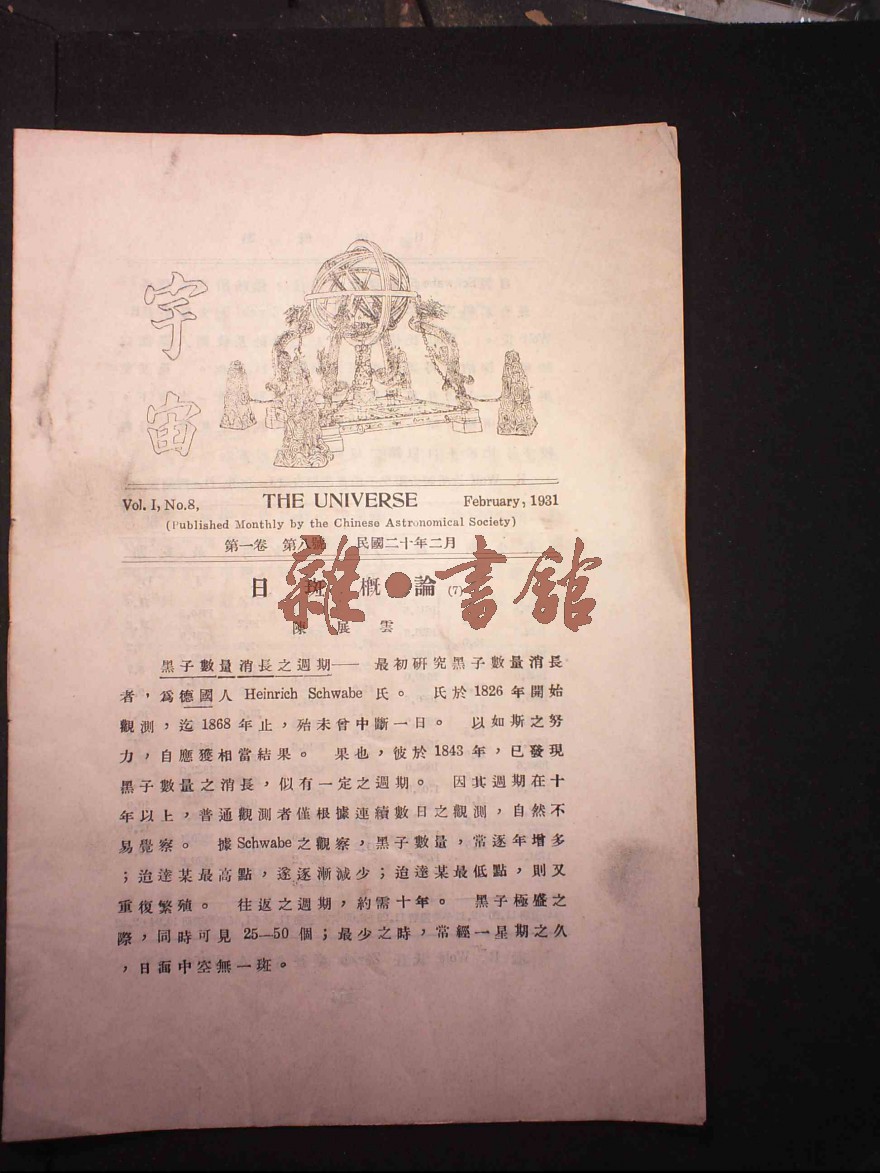 宇宙
Vol. I, No.8, THE UNIVERSE February, 1931
(Published Monthly by the Chinese Astronomical Society)
第一卷 第八號 民國二十年二月
日斑概論 (7)
陳展雲
雜·書館
黑子數量消長之週期—— 最初研究黑子數量消長
者，爲德國人 Heinrich Schwabe 氏。 氏於 1826 年開始
觀測，迄 1868 年止，殆未曾中斷一日。 以如斯之努
力，自應獲相當結果。 果也，彼於 1843 年，已發現
黑子數量之消長，似有一定之週期。 因其週期在十
年以上，普通觀測者僅根據連續數日之觀測，自然不
易覺察。 據 Schwabe 之觀察，黑子數量，常逐年增多
；迨達某最高點，遂逐漸減少；迨達某最低點，則又
重復繁殖。 往返之週期，約需十年。 黑子極盛之
際，同時可見 25—50 個；最少之時，常經一星期之久
，日面中空無一斑。